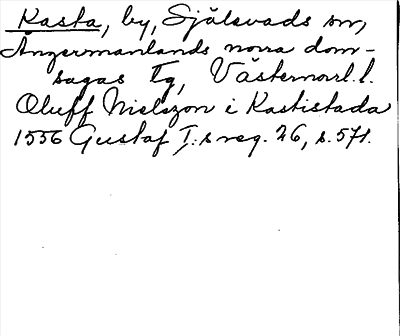 Kasta, by, Själevads sn,
Ångermanlands norra dom-
sagas tg, Västernorrl. l.
Oluff Nielszon i Kastistada
1556 Gustaf I:s reg. 26, s. 571.